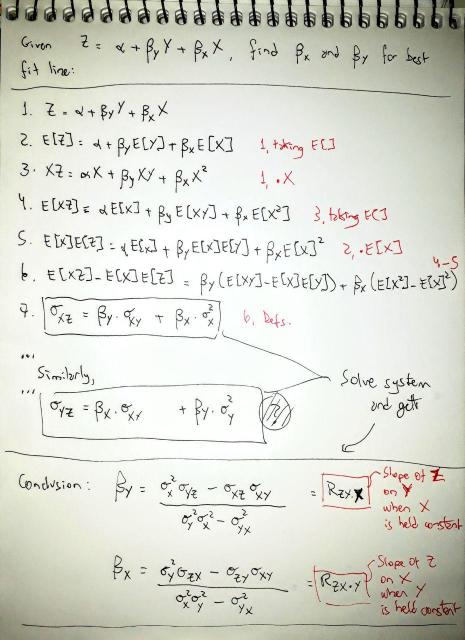 Given Z = α + βyY + βxX, find βx and βy for best
fit line:
1. Z = α + βyY + βxX
2. E[Z] = α + βyE[Y] + βxE[X] 1, taking E[]
3. XZ = αX + βyXY + βxX² 1, •X
4. E[XZ] = αE[X] + βyE[XY] + βxE[X²] 3, taking E[]
5. E[X]E[Z] = αE[X] + βyE[X]E[Y] + βxE[X]² 2, •E[X]
6. E[XZ] - E[X]E[Z] = βy(E[XY] - E[X]E[Y]) + βx(E[X²] - E[X]²) 4-5
7. σxz = βy·σxy + βx·σx² 6, Defs.
...
Similarly,
... σyz = βx·σxy + βy·σy²
Solve system
and get:
Conclusion: βy = (σx²σyz - σxzσxy) / (σy²σx² - σyx²) = Rzx.x
Slope of Z
on Y
when X
is held constant
βx = (σy²σzx - σzyσxy) / (σx²σy² - σyx²) = Rzx.y
Slope of Z
on X
when Y
is held constant